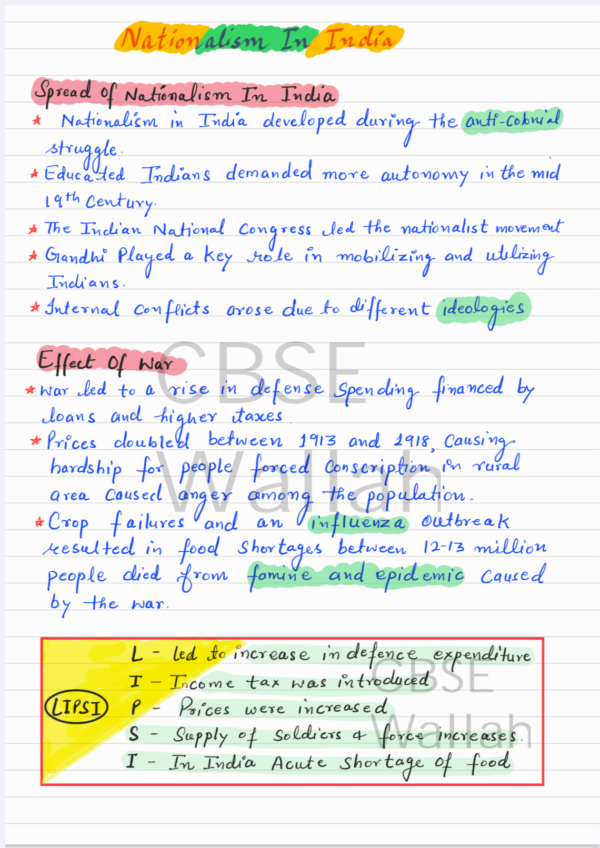 Nationalism In India
Spread of Nationalism In India
* Nationalism in India developed during the anti-colonial
struggle.
* Educated Indians demanded more autonomy in the mid
19th Century.
* The Indian National Congress led the nationalist movement
* Gandhi Played a key role in mobilizing and utilizing
Indians.
* Internal Conflicts arose due to different ideologies
Effect Of War
* War led to a rise in defense Spending financed by
loans and higher taxes.
* Prices doubled between 1913 and 1918, Causing
hardship for people forced Conscription in rural
area Caused anger among the population.
* Crop failures and an influenza outbreak
resulted in food Shortages between 12-13 million
people died from famine and epidemic Caused
by the war.
CBSE
Wallah
LIPSI
L - Led to increase in defence expenditure
I - Income tax was introduced
P - Prices were increased
S - Supply of Soldiers & force increases.
I - In India Acute Shortage of food
CBSE
Wallah